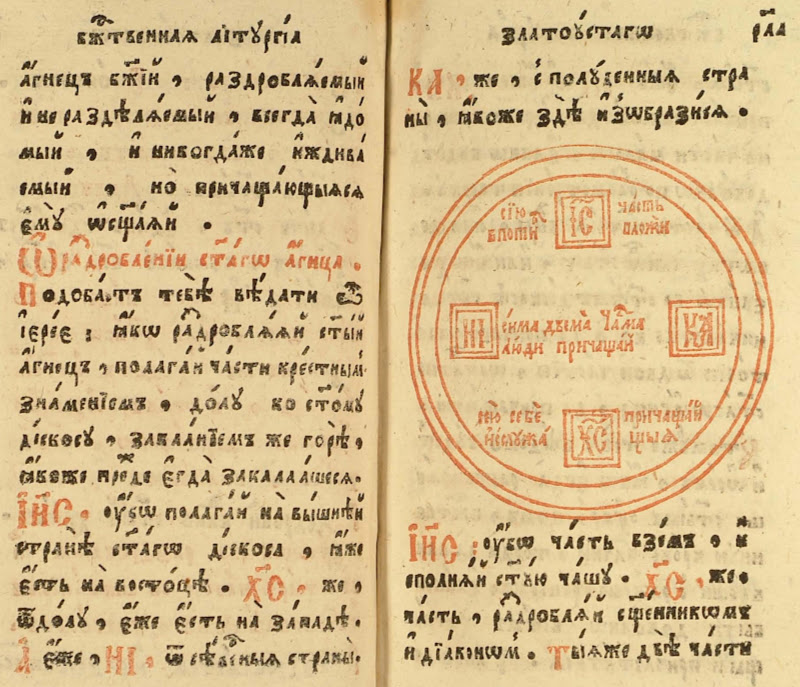 бж҃твеннаѧ лїтꙋргі́а
а҆́гнецъ бж҃їй , раздроблѧ́емый
и҆ не раздѣлѧ́емый , всегда̀ ꙗ҆до́
мый , и҆ никогда́же и҆ждива́
емый , но̀ причаща́ющыѧсѧ
є҆мꙋ̀ ѡ҆сщ҃а́ѧй .
Ѡ҆ раздробле́нїи ст҃а́гѡ а҆́гнца .
Подоба́етъ тебѣ̀ вѣ́дати ѽ
і҆ере́е : ꙗ҆́кѡ раздроблѧ́ѧй ст҃ы́й
а҆́гнецъ , полага́й ча́сти кре́стнымъ
зна́менїемъ , до́лꙋ ко ст҃о́мꙋ
ді́скосꙋ , закала́нїемъ же горѣ̀ ,
ꙗ҆́коже пре́жде є҆гда̀ закала́шесѧ .
І҆И҃С . ᲂу҆́бѡ полага́й на вы́шнѣй
странѣ̀ ст҃а́гѡ ді́скоса , ꙗ҆́же
є҆́сть на восто́цѣ . ХС҃ . же ,
ѿдо́лꙋ , є҆́же є҆́сть на за́падѣ .
А҆ є҆́же , НИ . ѿ сѣ́верныѧ страны̀ .
златоꙋ́стагѡ
рл҃а
КА . же , с̾ полꙋ́денныѧ стра
ны̀ , ꙗ҆́коже здѣ̀ и҆з̾ѡбрази́сѧ .
сїю̀ ІС҃ ча́сть
в поти́ръ вложѝ
НИ си́ма двѣма̀ ча́стьма КА
лю́ди причаща́й
сїю̀ себѐ ХС҃ причаща́й
и҆ слꙋжа́щыѧ
І҆И҃С : ᲂу҆́бѡ ча́сть взе́мъ , и҆
сполнѧ́й ст҃ꙋ́ю ча́шꙋ . ХС҃ . же .
ча́сть , раздроблѧ́й сщ҃е́нникѡмъ
и҆ дїа́конѡмъ . Ты́ѧже двѣ̀ ча́сти